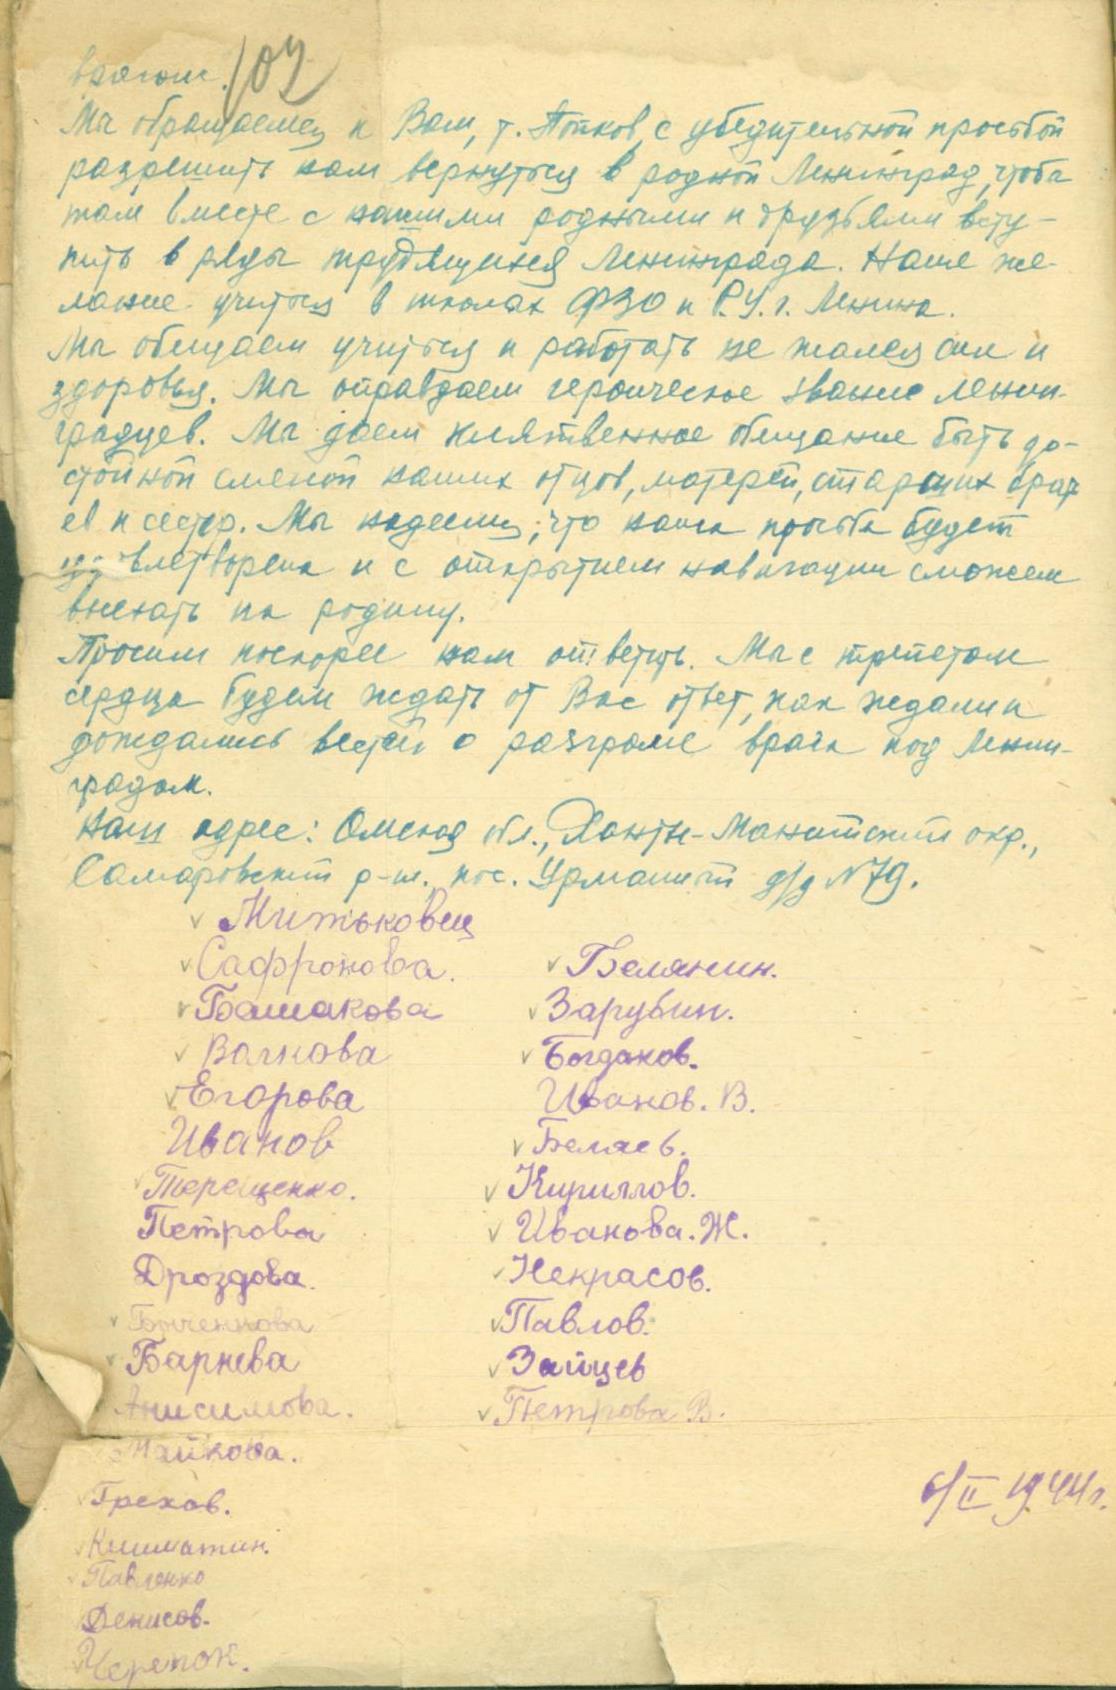 врагом.
107
Мы обращаемся к Вам, т. Попков, с убедительной просьбой
разрешить нам вернуться в родной Ленинград, чтобы
там вместе с нашими родными и друзьями всту-
пить в ряды трудящихся Ленинграда. Наше же-
лание учиться в школах ФЗО и Р.У. г. Ленина.
Мы обещаем учиться и работать не жалея сил и
здоровья. Мы оправдаем героическое звание ленин-
градцев. Мы даем клятвенное обещание быть до-
стойной сменой наших отцов, матерей, старших брать
ев и сестер. Мы надеемся, что наша просьба будет
удовлетворена и с открытием навигации сможем
выехать на родину.
Просим поскорее нам ответить. Мы с трепетом
сердца будем ждать от Вас ответ, как ждали и
дождались вестей о разгроме врага под Ленин-
градом.
Наш адрес: Омская обл., Ханты-Мансийский окр.,
Самаровский р-н, пос. Урманный д/д №79.
Митьковец
Сафронова.
Башмакова
Волкова
Егорова
Иванов
Терещенко.
Петрова
Дроздова.
Бонченкова
Барнева
Анисимова.
Майкова.
Грехов.
Павленко
Денисов.
Черепок.
Белянин.
Зарубин.
Богданов.
Иванов. В.
Беляев.
Кириллов.
Иванова. Ж.
Некрасов.
Павлов.
Зайцев
Петрова В.
6/II 1944 г.